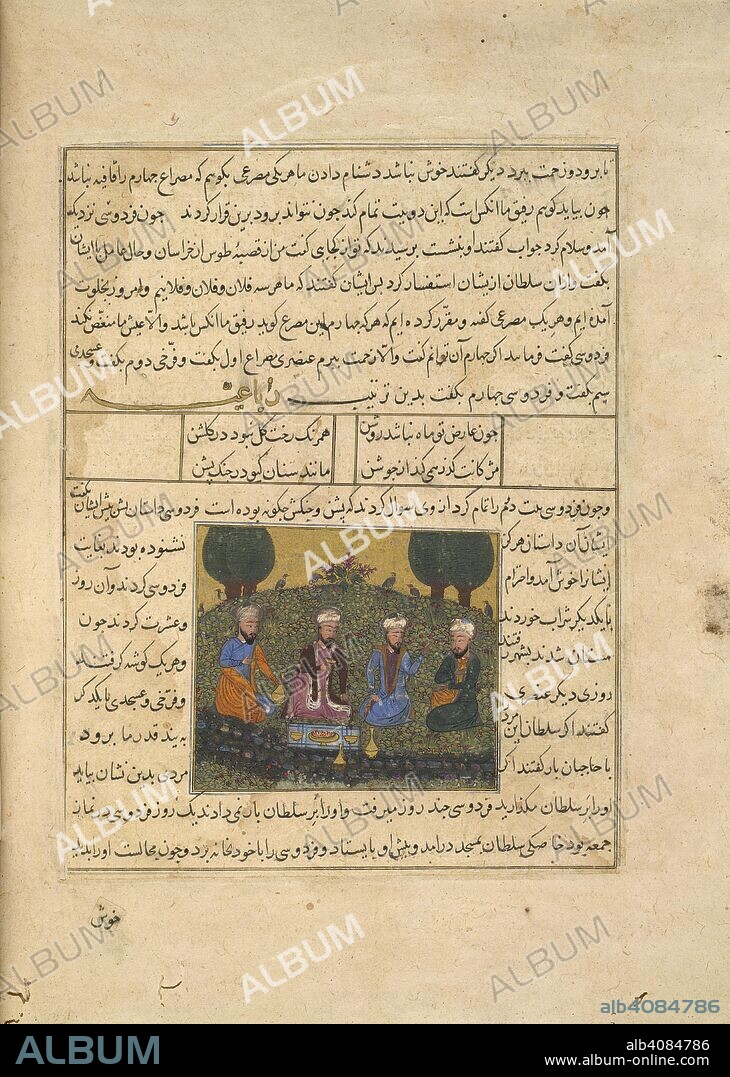 تا برود و زحمت ببرد دیگر گفتند خوش نباشد دشنام دادن ما هر یکی مصرعی بگوییم که مصراع چهارم را قافیه نباشد
چون بیاید گوییم رفیق ما انکس است که این دو بیت تمام کند چون نتواند برود برین قرار کردند چون فردوسی نزدیک
آمد و سلام کرد جواب گفتند او بنشست برسیدند که تو از کجایی گفت من از قصبهٔ طوس از خراسان و حال عامل با ایشان
بگفت و از ان سلطان ازیشان استفسار کرد بس ایشان گفتند که ما هر سه فلان و فلان و فلانیم و امروز بخلوت
آمده ایم و هر یک مصرعی گفته و مقرر کرده ایم که هر که چهارم این مصرع گوید رفیق ما انکس باشد والا عیش ما منغص نکند
فردوسی گفت فرمایند اگر چهارم آن توانم گفت والا زحمت ببرم عنصری مصراع اول بگفت و فرخی دوم بگفت و عسجدی
سیم بگفت و فردوسی چهارم بگفت بدین ترتیب رباعیه
چون عارض تو ماه نباشد روشن همرنک رخت کل نبود در کلشن
مژکانت گذر همی کند از جوشن مانند سنان کیو در جنک بشن
و چون فردوسی بیت دیم را تمام کرد از وی سوال کردند که بشن و جنکش چکونه بوده است فردوسی داستان بشن بیش ایشان بگفت
ایشان آن داستان هرگز نشنوده بودند بغایت
ایشان را خوش آمد و احترام فردوسی کردند و آن روز
با یکدیگر شراب خوردند و عشرت کردند چون
مستان شدند بشهر رفتند و هر یک گوشه گرفتند
روزی دیگر عنصری و فرخی و عسجدی با یکدیگر
گفتند اگر سلطان این مرد به بیند قدر ما برود
با حاجبان بار گفتند اگر مردی بدین نشان بیاید
او را بر سلطان مگذارید فردوسی چند روز میرفت و او را بر سلطان بار نمی دادند یک روز فردوسی در نماز
جمعه بود خاصکی سلطان بمسجد درامد و بیش او بایستاد و فردوسی را با خود بخانه برد و چون مجالست او را بدید
خوش
ALBUM
alb4084786
ALBUM
alb4084786
www.album-online.com